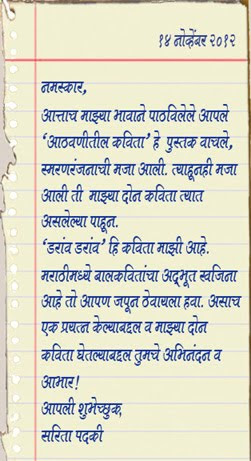 १४ नोव्हेंबर २०१२
नमस्कार,
आत्ताच माझ्या भावाने पाठविलेले आपले
‘आठवणीतील कविता’ हे पुस्तक वाचले,
स्मरणरंजनाची मजा आली. त्याहूनही मजा
आली ती माझ्या दोन कविता त्यात
असलेल्या पाहून.
‘डरांव डरांव’ हि कविता माझी आहे.
मराठीमध्ये बालकवितांचा अद्भूत खजिना
आहे तो आपण जपून ठेवायला हवा. असाच
एक प्रयत्न केल्याबद्दल व माझ्या दोन
कविता घेतल्याबद्दल तुमचे अभिनंदन व
आभार!
आपली शुभेच्छुक,
सरिता पदकी